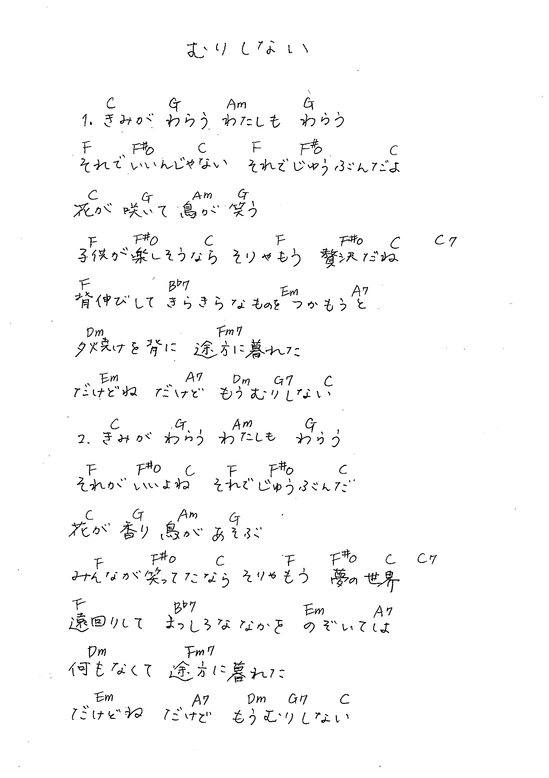 むりしない
C G Am G
1. きみが わらう わたしも わらう
F F#o C F F#o C
それで いいんじゃない それで じゅうぶんだよ
C G Am G
花が 咲いて 鳥が 笑う
F F#o C F F#o C C7
子供が 楽しそうなら そりゃもう 贅沢だね
F Bb7 Em A7
背伸びして きらきらなものを つかもうと
Dm Fm7
夕焼けを背に 途方に暮れた
Em A7 Dm G7 C
だけどね だけど もうむりしない
C G Am G
2. きみが わらう わたしも わらう
F F#o C F F#o C
それが いいよね それで じゅうぶんだ
C G Am G
花が 香り 鳥が あそぶ
F F#o C F F#o C C7
みんなが 笑ってたなら そりゃもう 夢の世界
F Bb7 Em A7
遠回りして まっしろななかを のぞいてしよ
Dm Fm7
何もなくて 途方に暮れた
Em A7 Dm G7 C
だけどね だけど もうむりしない